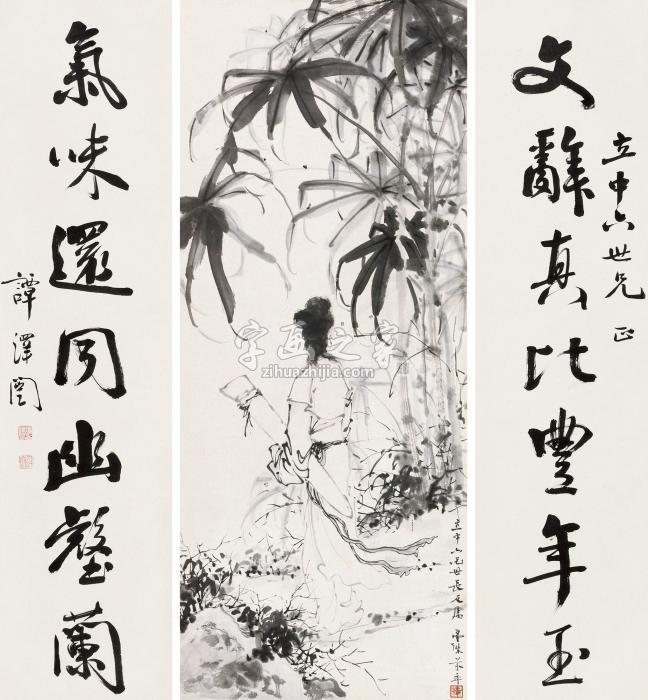 立中六世兄 正
文辭真比豐年玉
立中六兄世長之屬
字画之家
zihuazhijia.com
氣味還同幽壑蘭
譚澤闓